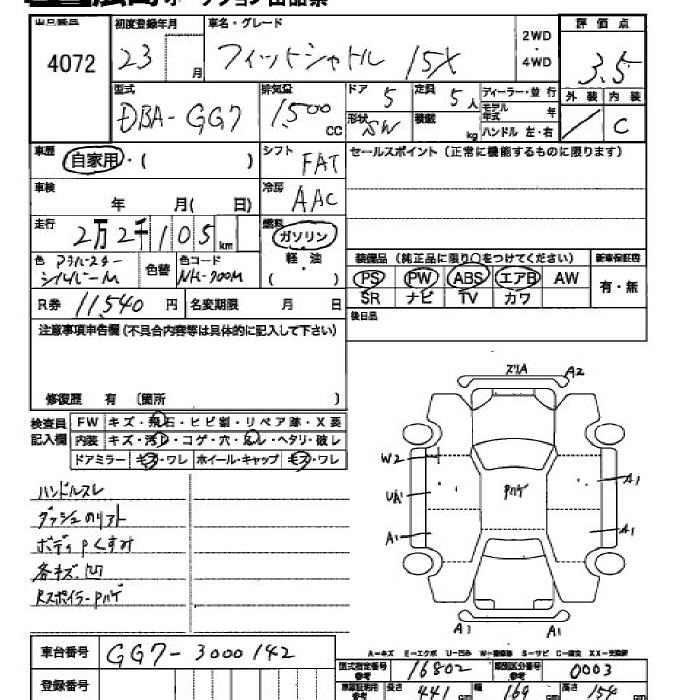 広島オークション出品票
出品番号 初度登録年月 車名・グレード 評価点
4072 23 月 フィットシャトル 15X 2WD・4WD 3.5
型式 排気量 ドア 5 定員 5人 ディーラー・並行 外装 内装
DBA-GG7 1,500 CC 形状 SW 積載 kg モデル年式 年 ハンドル 左・右 / C
車歴 自家用・( ) シフト FAT セールスポイント(正常に機能するものに限ります)
車検 年 月( 日) 冷房 AAC
走行 2万2千105km 燃料 ガソリン
軽・油
( )
装備品(純正品に限り○をつけてください) 新車保証書
色 アラバスターシルバーM 色替 色コード NH-700M
PS PW ABS エアB AW 有・無
SR ナビ TV カワ
R券 11,540円 名変期限 月 日
後日品
注意事項申告欄(不具合内容等は具体的に記入して下さい)
修復歴 有 〔箇所 〕
検査員記入欄 FW キズ・飛石・ヒビ割・リペア跡・X要
内装 キズ・汚レ・コゲ・穴・スレ・ヘタリ・破レ
ドアミラー キズ・ワレ ホイール・キャップ キズ・ワレ
ハンドルスレ
ダッシュのリフト
ボディPくすみ
各キズ・凹
RスポイラーPハゲ
ズリA A2
W2
UA1 Pハゲ A1
A1 A1
A1 A1
A-キズ E-エクボ U-凹み W-補修跡 S-サビ C-腐食 XX-交換跡
車台番号 GG7-3000142
型式指定番号 参考 16802 類別区分番号 参考 0003
登録番号
車検証明用 参考 長さ 441 cm 幅 169 cm 高さ 154 cm